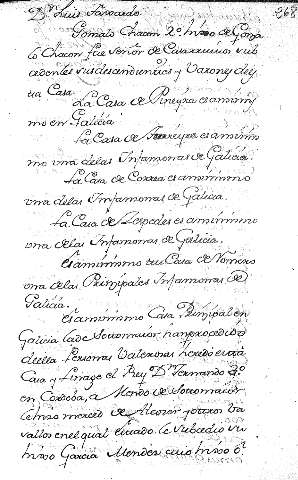 Dn Luis Faxardo.
Gonzalo Chacon 2o hixo de Gonza
lo Chacon fue Señor de Casarrubios sub
ceden les sus descendientes y Varones de es
ta Casa.
La Casa de Piñeyra es asimis
mo en Galicia.
La Casa de es asimis
mo una de las Infanzonas de Galicia.
La Casa de Correa es asimismo
una de las Infanzonas de Galicia.
La Casa de Zespedes es asimismo
una de las Infanzonas de Galicia.
Es asimismo la Casa de Romero
una de las Prinzipales Infanzonas de
Galicia.
Es asimismo Casa Prinzipal en
Galicia la de Sotomaior, han prozedido
de ella Personas Valerosas heredo esta
Casa y Linage el Rey Dn Fernando 3o
en Cordova, a Mendo de Sotomaior
le hizo merced de Alcozer y otros ba
sallos en el qual estado le subzedio su
hixo Garcia Mendez cuio hixo